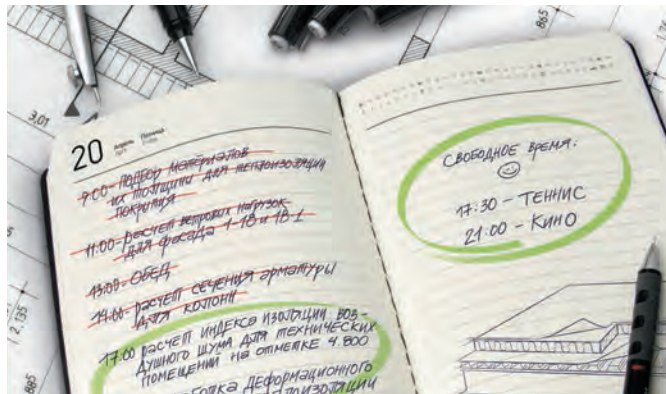 20
Апрель Пятница
9:00 - подбор материалов
их толщины для теплоизоляции
покрытия
11:00 - расчет ветровых нагрузок
для фасада 1-18 и 18-1
13:00 - ОБЕД
14:00 - расчет сечения арматуры
для колонн
17:00 расчет индекса изоляции воз-
душного шума для технических
помещений на отметке 4.800
деформационного
СВОБОДНОЕ ВРЕМЯ:
17:30 - ТЕННИС
21:00 - КИНО
3,01
2,135
885
865